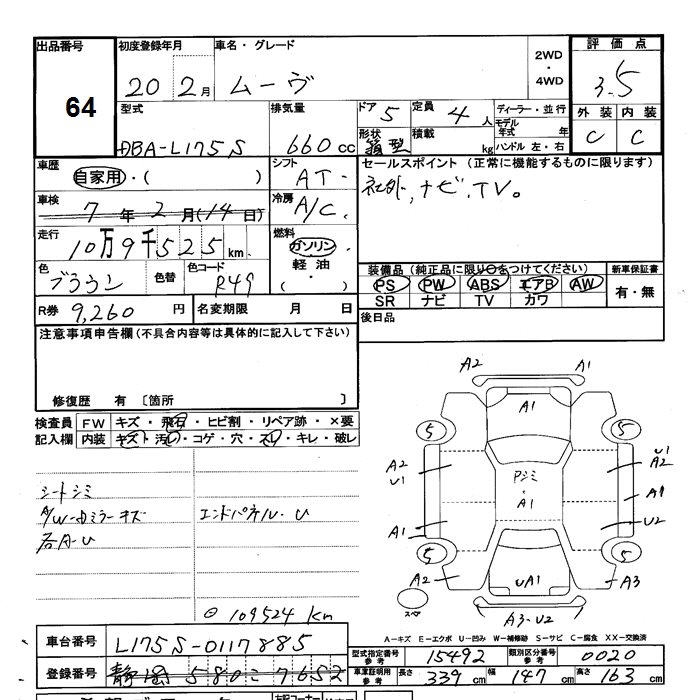 出品番号 初度登録年月 車名・グレード 評価点
64 20 2月 ムーヴ 2WD ・ 4WD 3.5
型式 排気量 ドア 5 定員 4人 ディーラー・並行 外装 内装
DBA-L175S 660cc 形状 箱型 積載 kg モデル年式 年 ハンドル 左・右 C C
車歴 自家用・( ) シフト AT セールスポイント (正常に機能するものに限ります)
車検 7年2月(14日) 冷房 A/C 社外、ナビ、TV。
走行 10万9千525km 燃料 ガソリン・軽油・( )
色 ブラウン 色替 色コード R49 装備品 (純正品に限り○をつけてください) 新車保証書
PS PW ABS エアB AW 有・無
SR ナビ TV カワ
R券 9,260円 名変期限 月 日 後日品
注意事項申告欄 (不具合内容等は具体的に記入して下さい)
修復歴 有 〔箇所 〕
検査員 FW キズ・飛石・ヒビ割・リペア跡・×要
記入欄 内装 キズ・汚い・コゲ・穴・スレ・キレ・破レ
シートシミ
A/W・ドミラーキズ エンドパネル・U
右A・U
109524 Km
A2 A1
A1
5 5
A2 U1 U1 A2
Pシミ
A1 A1
A1 U2
5 5
A2 UA1 A3
スペア A3・U2
A-キズ E-エクボ U-凹み W-補修跡 S-サビ C-腐食 XX-交換済
車台番号 L175S-0117885 型式指定番号 参考 15492 類別区分番号 参考 0020
登録番号 静岡 580 こ 7652 車庫証明用 参考 長さ 339cm 幅 147cm 高さ 163cm